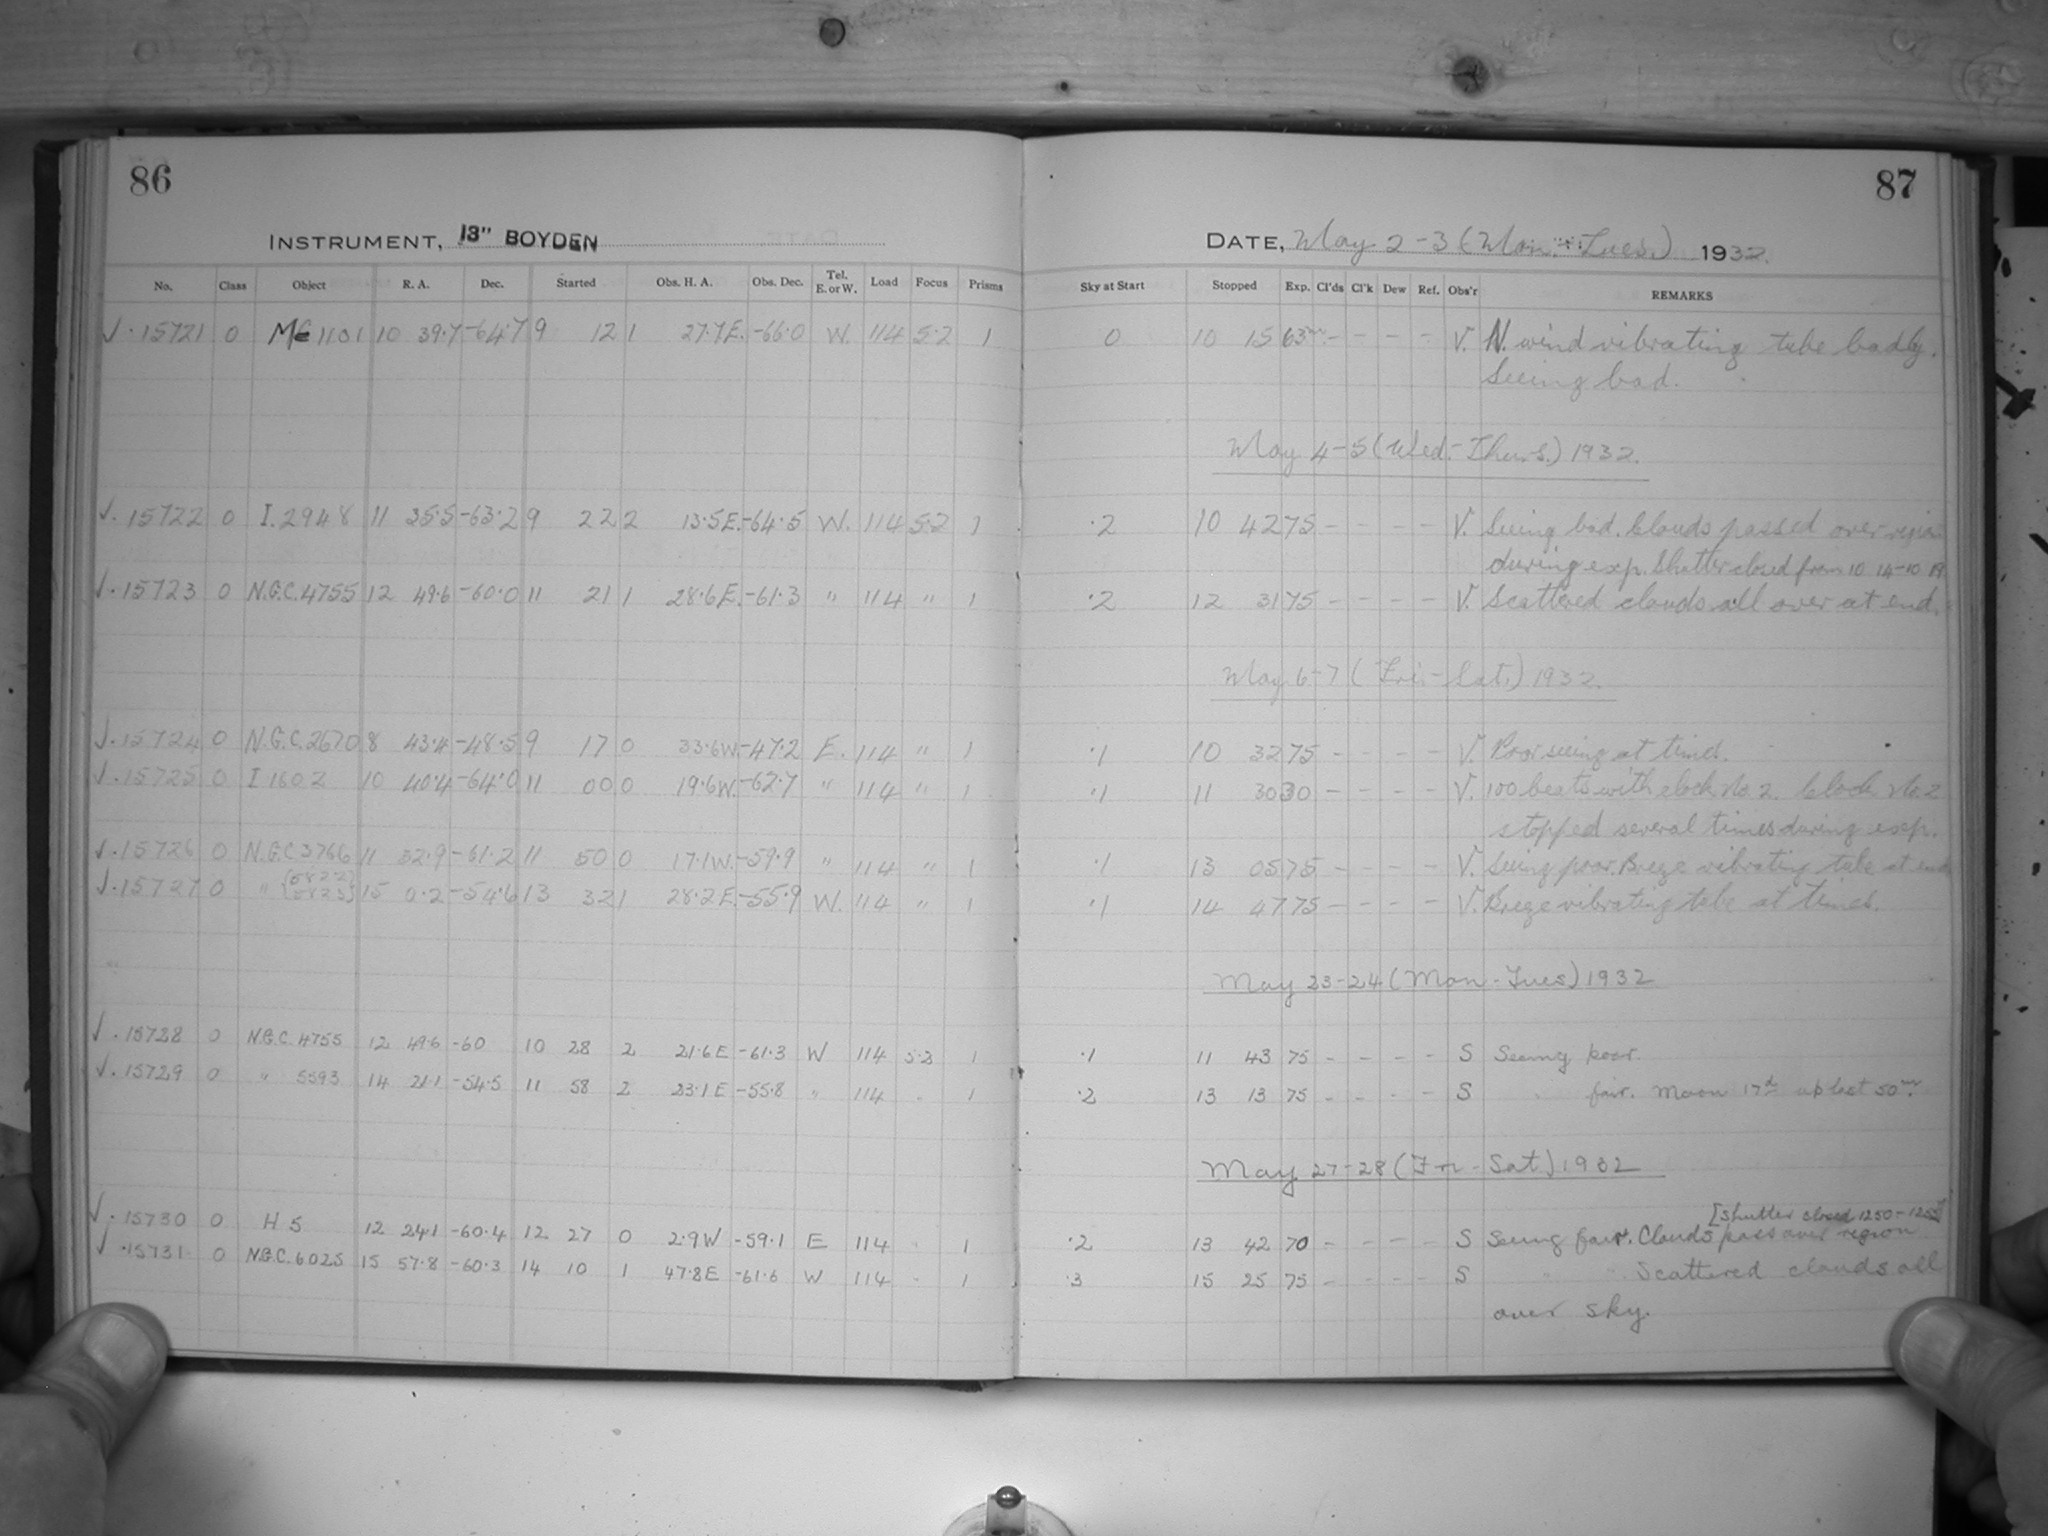 86
INSTRUMENT, 13" BOYDEN
No. Class Object R. A. Dec. Started Obs. H. A. Obs. Dec. Tel. E. or W. Load Focus Prisms
√. 15721 0 1101 10 39.7 -64.7 9 12 1 27.7 E. -66.0 W. 114 5.2 1
√. 15722 0 I. 2948 11 35.5 -63.2 9 22 2 13.5 E. -64.5 W. 114 5.2 1
√. 15723 0 N.G.C. 4755 12 49.6 -60.0 11 21 1 28.6 E. -61.3 " 114 " 1
√. 15724 0 N.G.C. 2670 8 43.4 -48.5 9 17 0 33.6 W. -47.2 E. 114 " 1
√. 15725 0 I 1602 10 40.4 -64.0 11 00 0 19.6 W. -62.7 " 114 " 1
√. 15726 0 N.G.C 3766 11 32.9 -61.2 11 50 0 17.1 W. -59.9 " 114 " 1
√. 15727 0 " {5822 5823} 15 0.2 -54.6 13 32 1 28.2 E. -55.9 W. 114 " 1
√. 15728 0 N.G.C. 4755 12 49.6 -60 10 28 2 21.6 E -61.3 W 114 5.2 1
√. 15729 0 " 5593 14 21.1 -54.5 11 58 2 23.1 E -55.8 " 114 1
√. 15730 0 H 5 12 24.1 -60.4 12 27 0 2.9 W -59.1 E 114 1
√. 15731 0 N.G.C. 6025 15 57.8 -60.3 14 10 1 47.8 E -61.6 W 114 1
87
DATE, May 2-3 (Mon.-Tues.) 1932.
Sky at Start Stopped Exp. Cl'ds Cl'k Dew Ref. Obs'r REMARKS
0 10 15 63m - - - - V. N. wind vibrating tube badly.
Seeing bad.
May 4-5 (Wed.-Thurs.) 1932.
.2 10 42 75 - - - - V. Seeing bad. Clouds passed over region
during exp. Shutter closed from 10 14-10 19.
.2 12 31 75 - - - - V. Scattered clouds all over at end.
May 6-7 (Fri.-Sat.) 1932.
.1 10 32 75 - - - - V. Poor seeing at times.
.1 11 30 30 - - - - V. 100 beats with clock No. 2. Clock No. 2
stopped several times during exp.
.1 13 05 75 - - - - V. Seeing poor. Breeze vibrating tube at end
.1 14 47 75 - - - - V. Breeze vibrating tube at times.
May 23-24 (Mon-Tues) 1932
.1 11 43 75 - - - - S Seeing poor.
.2 13 13 75 - - - - S " fair. Moon 17d up last 50m.
May 27-28 (Fri-Sat) 1932
[Shutter closed 1250-1255]
.2 13 42 70 - - - - S Seeing fair. Clouds pass over region
.3 15 25 75 - - - - S " " Scattered clouds all
over sky.